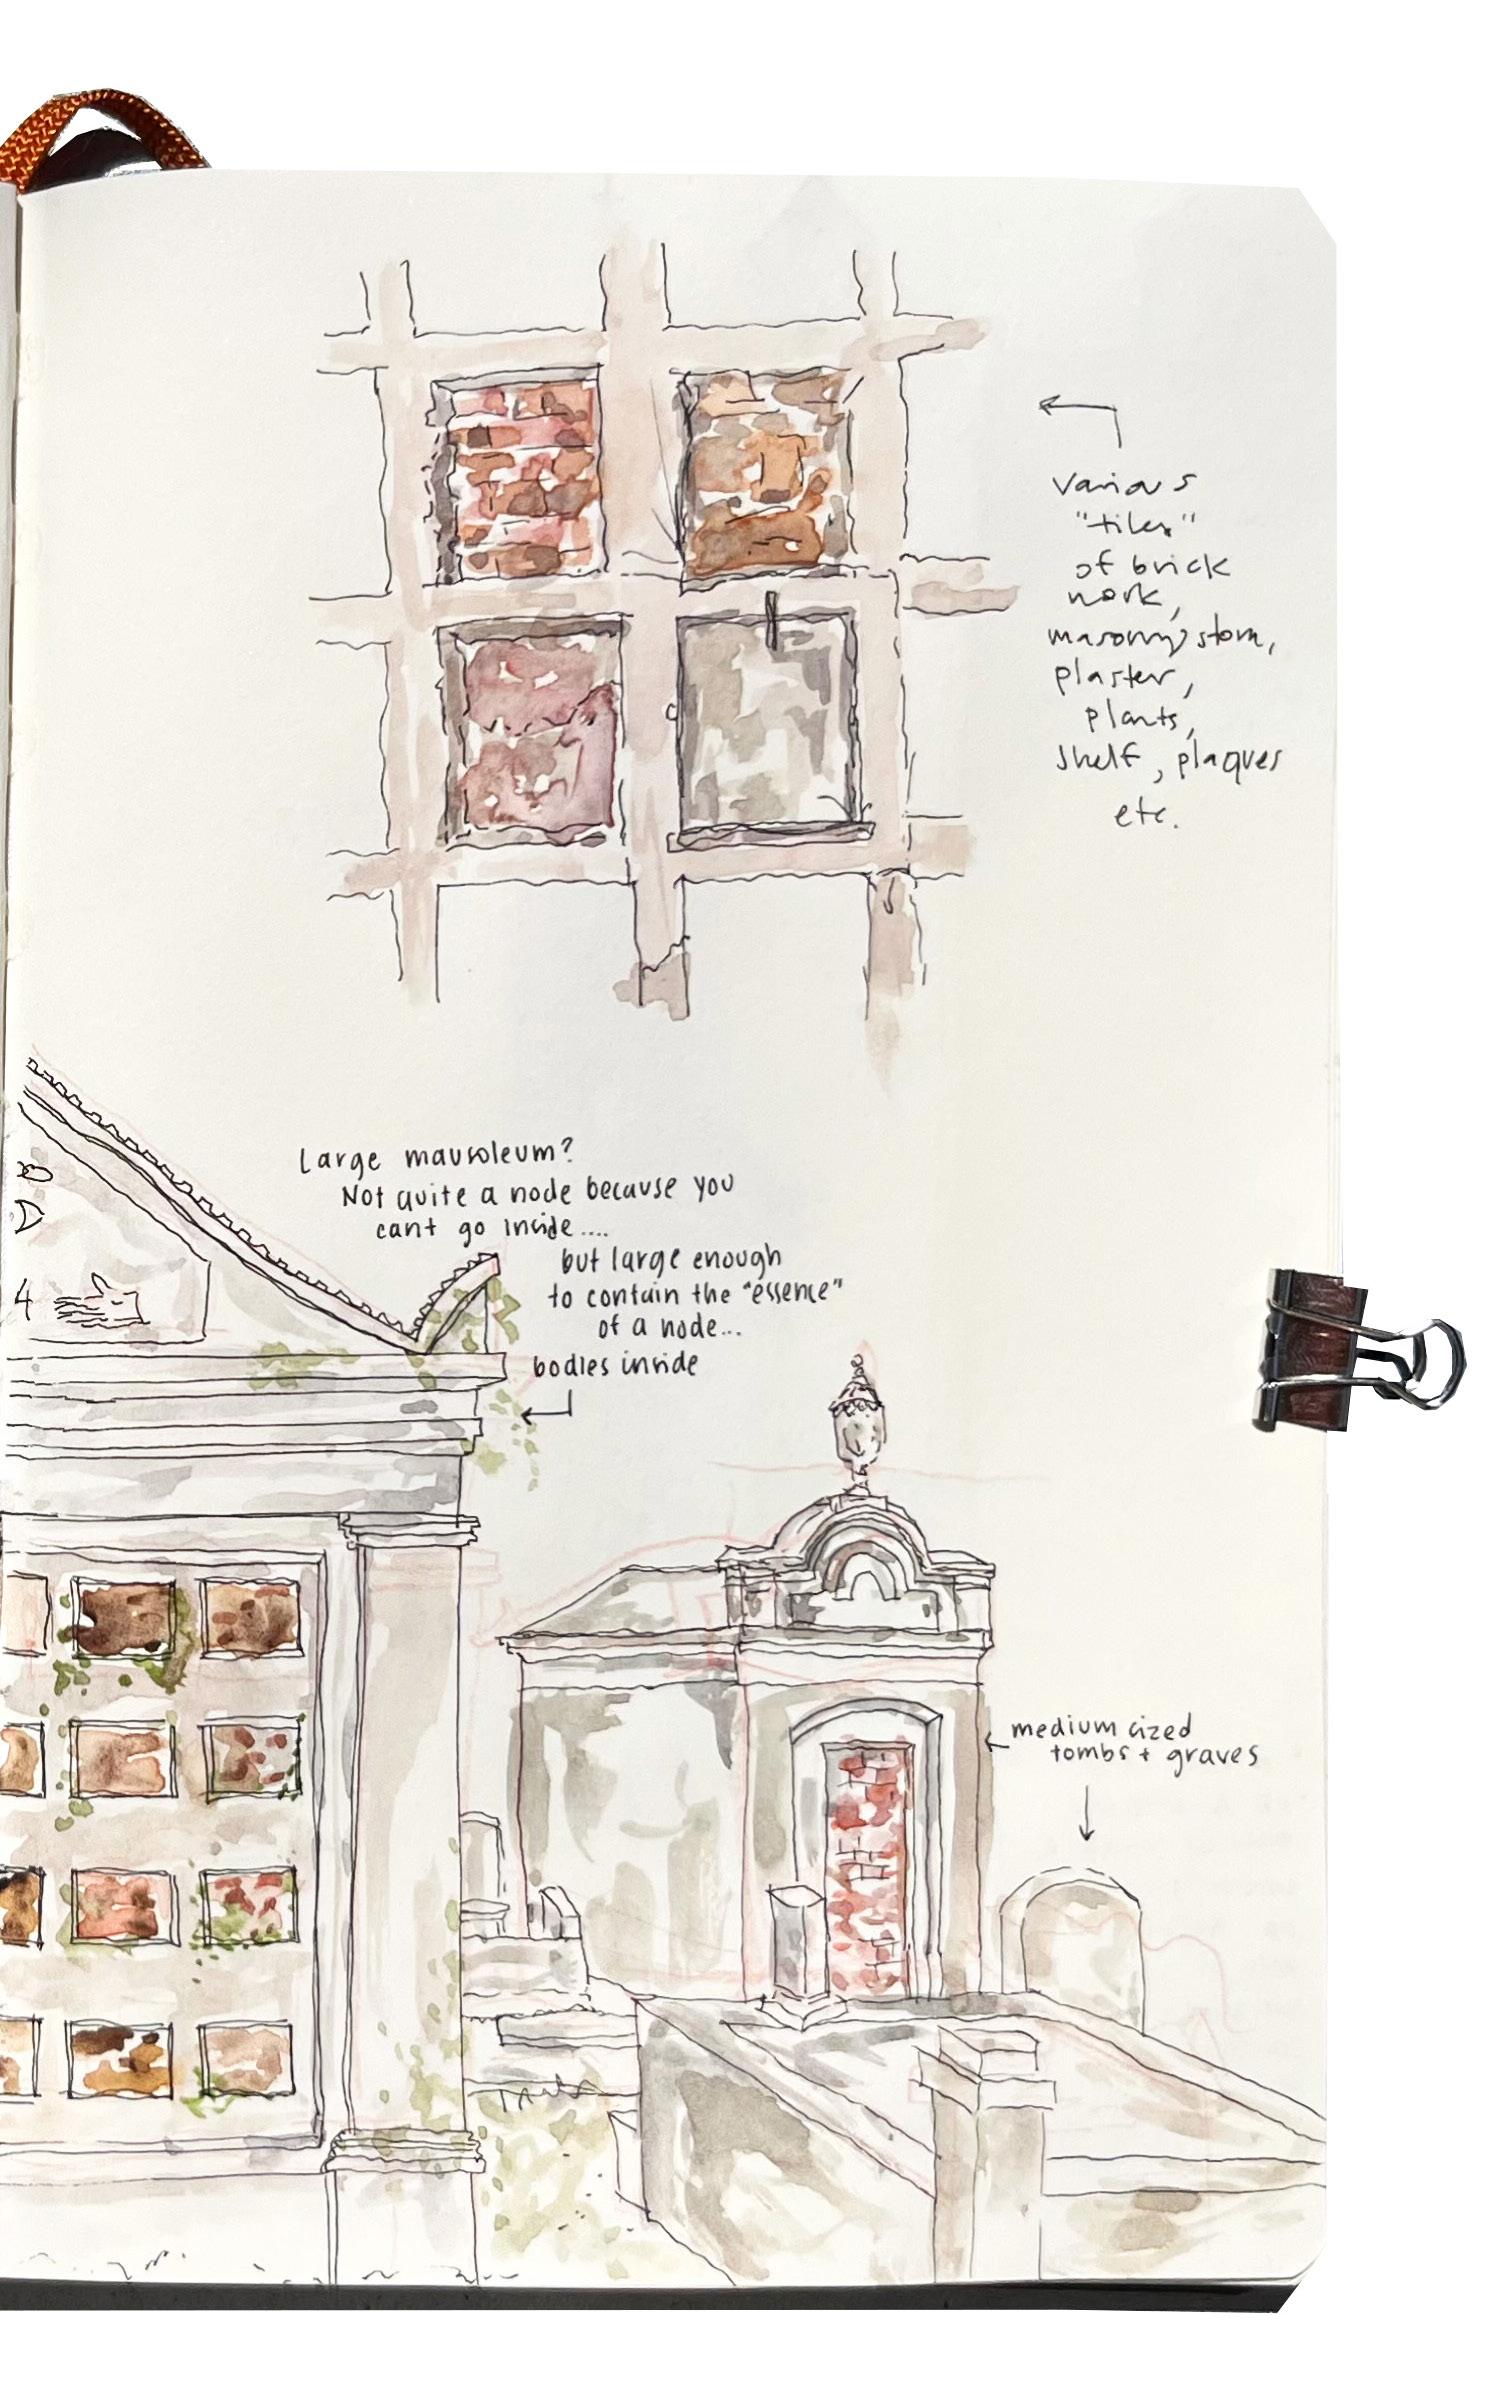 various
"tiles"
of brick
work,
masonry, stone,
plaster,
plants,
shelf, plaques
etc.
Large mausoleum?
Not quite a node because you
cant go inside....
but large enough
to contain the "essence"
of a node...
bodies inside
medium sized
tombs + graves